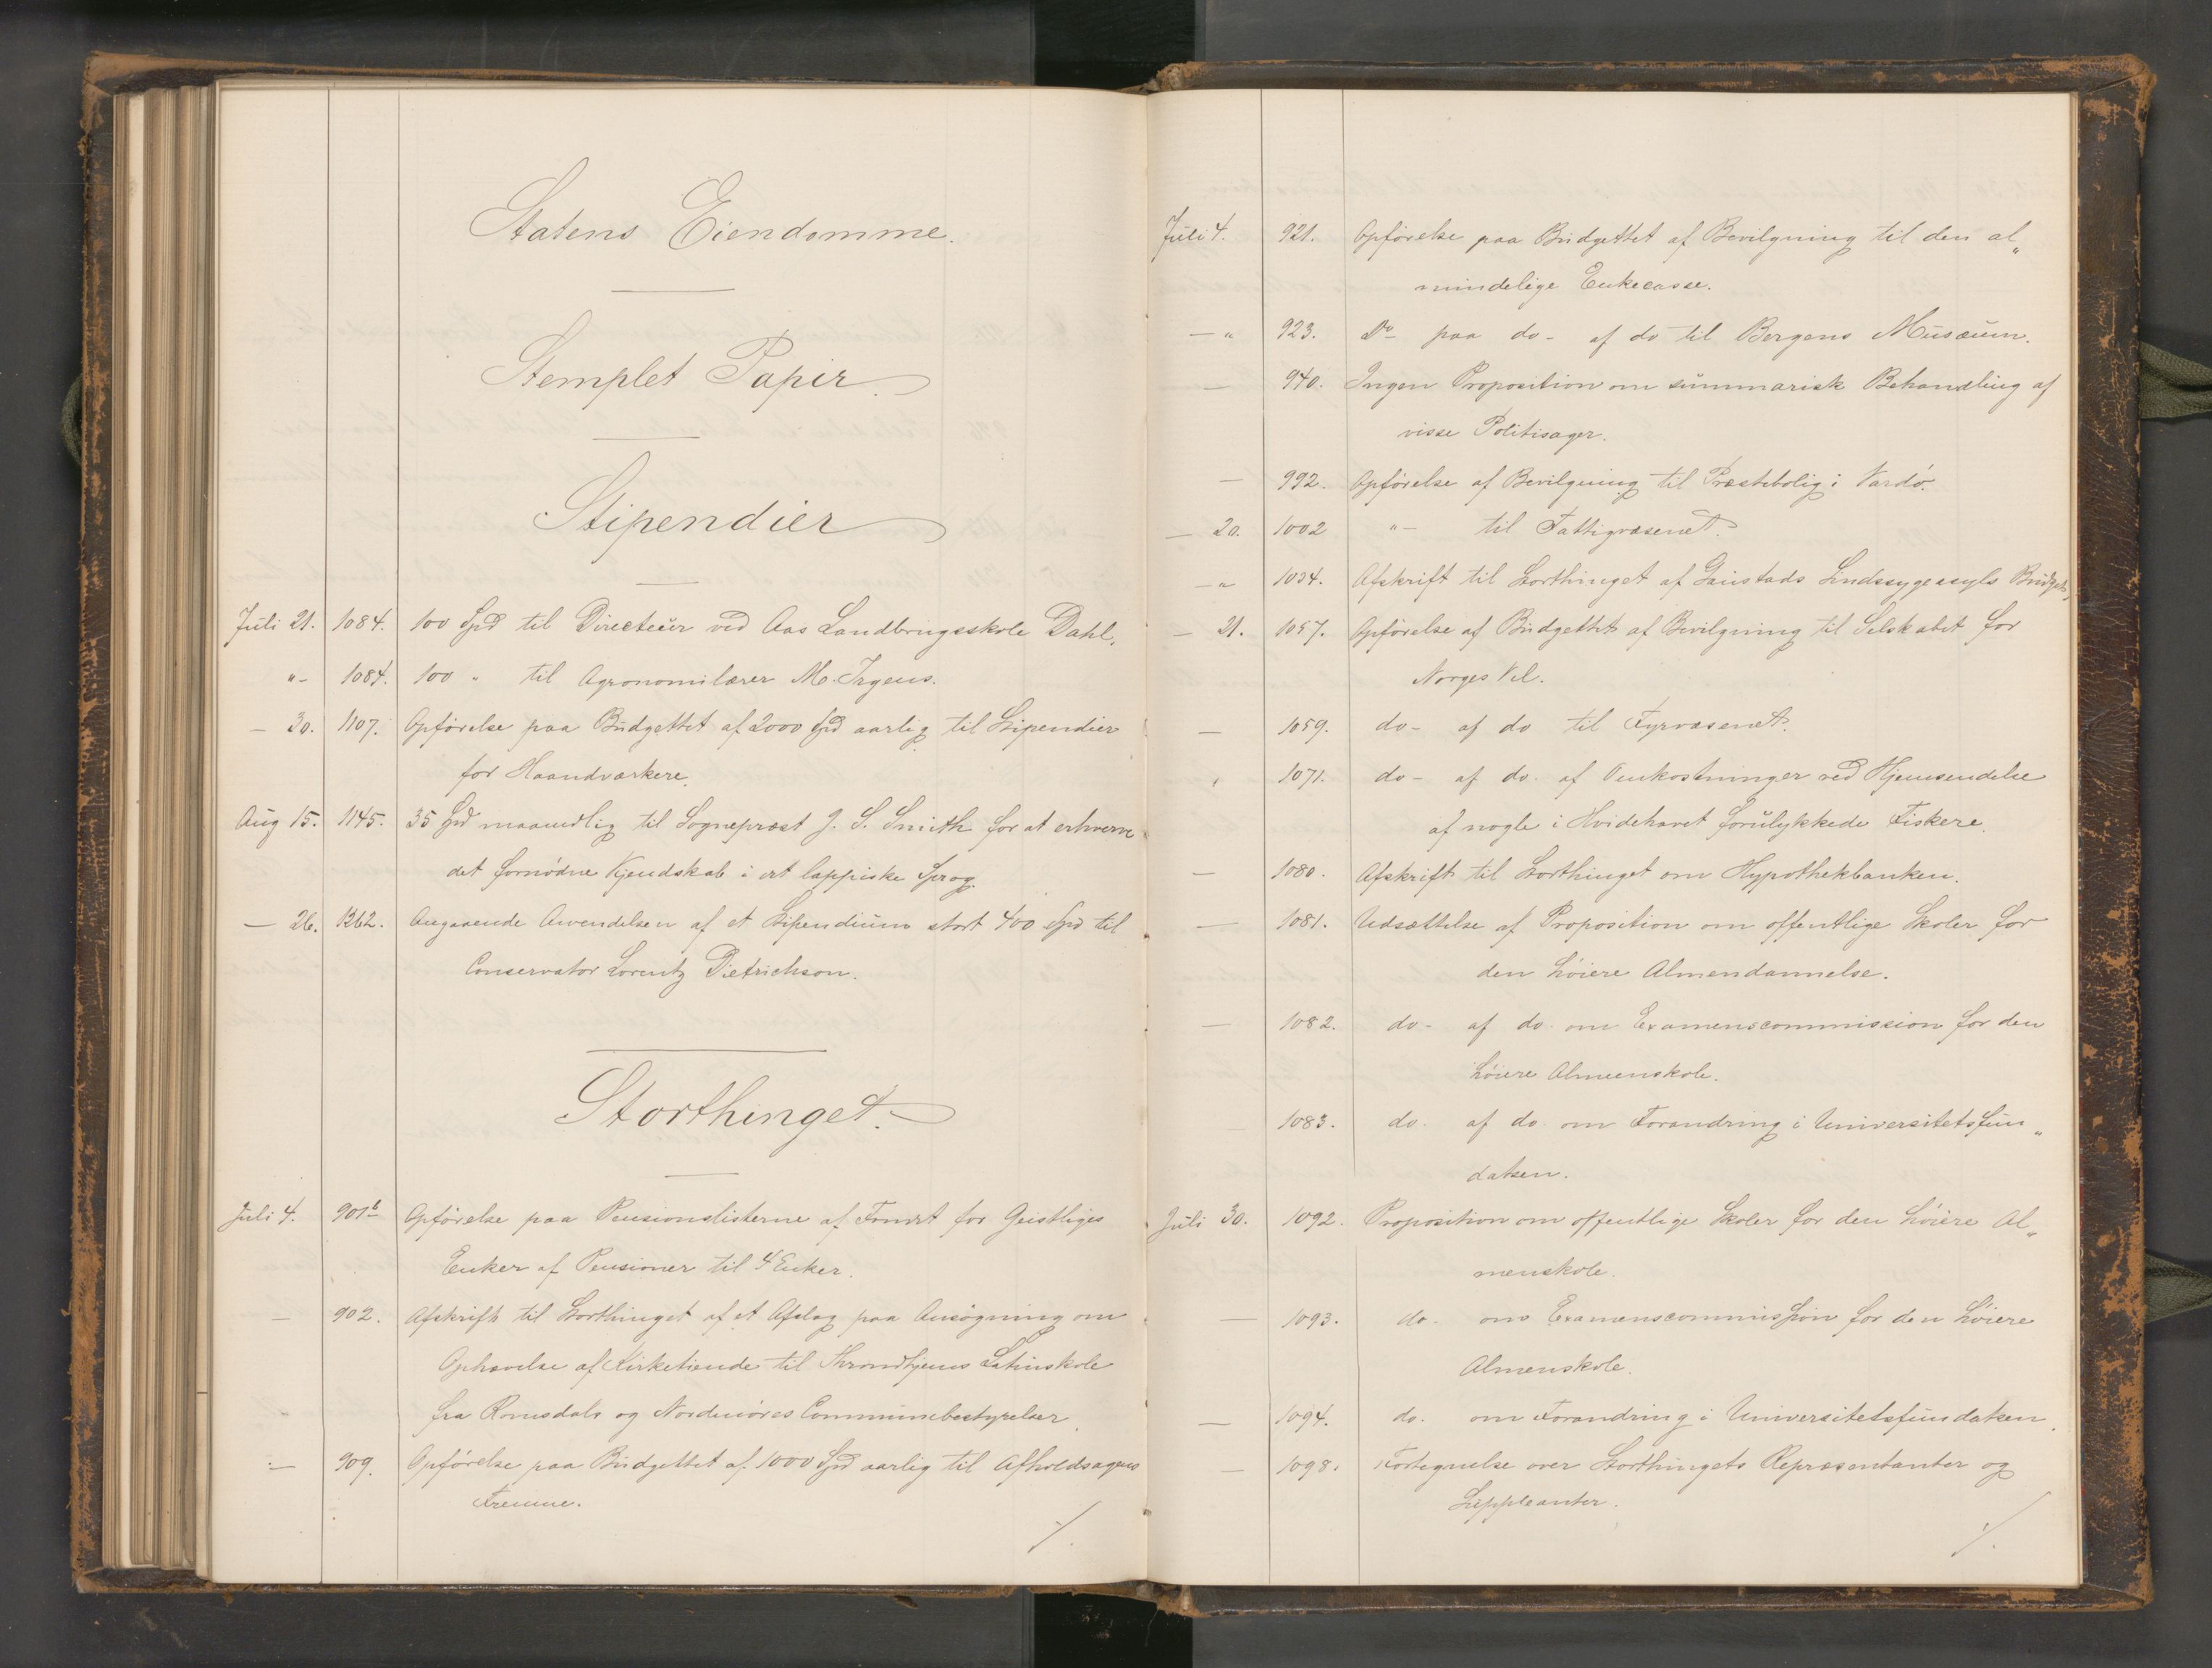 Statens Eiendomme.
Stemplet Papir.
Stipendier
Juli 21. 1084. 100 Spd til Directeür ved Aas Landbrugsskole Dahl.
"- 1084. 100 " til Agronomilærer M. Irgens.
- 30. 1107. Opførelse paa Büdgettet af 2000 Spd aarlig til Stipendier
for Haandværkere.
Aug 15. 1145. 35 Spd maanedlig til Sognepræst J. S. Smith for at erhverve
det fornødne Kjendskab i det lappiske Sprog.
- 26. 1262. Angaaende Anvendelsen af et Stipendium stort 400 Spd til
Conservator Lorentz Dietrichson.
Storthinget.
Juli 4. 901b Opførelse paa Pensionslisterne af Fondet for Geistliges
Enker af Pensioner til 4 Enker.
- 902. Afskrift til Storthinget af et Afslag paa Ansøgning om
Ophævelse af Kirketiende til Throndhjems Latinskole
fra Romsdals og Nordmøres Communebestyrelser.
- 909. Opførelse paa Büdgettet af 1000 Spd aarlig til Afholdsagens
Fremme.
./.
Juli 4. 921. Opførelse paa Büdgettet af Bevilgning til den al„
mindelige Enkecasse.
- " 923. Do- paa do- af do til Bergens Musæum.
- 940. Ingen Proposition om sümmarisk Behandling af
visse Politisager.
- 992. Opførelse af Bevilgning til Præstebolig i Vardø.
- 20. 1002 "- til Fattigvæsenet.
- " 1034. Afskrift til Storthinget af Gaüstads Sindssygeasyls Büdget.
- 21. 1057. Opførelse af Büdgettet af Bevilgning til Selskabet for
Norges Vel.
- 1059. do- af do til Fyrvæsenet.
" 1071. do- af do. af Omkostninger ved Hjemsendelse
af nogle i Hvidehavet forülykkede Fiskere.
- 1080. Afskrift til Storthinget om Hypothekbanken.
- 1081. Udsættelse af Proposition om offentlige Skoler for
den høiere Almendannelse.
- 1082. do- af do. om Examenscommission for den
høiere Almenskole.
1083. do. af do. om Forandring i Universitetsfün„
datsen.
Juli 30. 1092. Proposition om offentlige Skoler for den høiere Al„
menskole.
- 1093. do. om Examenscommission for den høiere
Almenskole.
- 1094. do. om Forandring i Universitetsfündatsen.
- 1098. Fortegnelse over Storthingets Repræsentanter og
Süppleanter.
./.